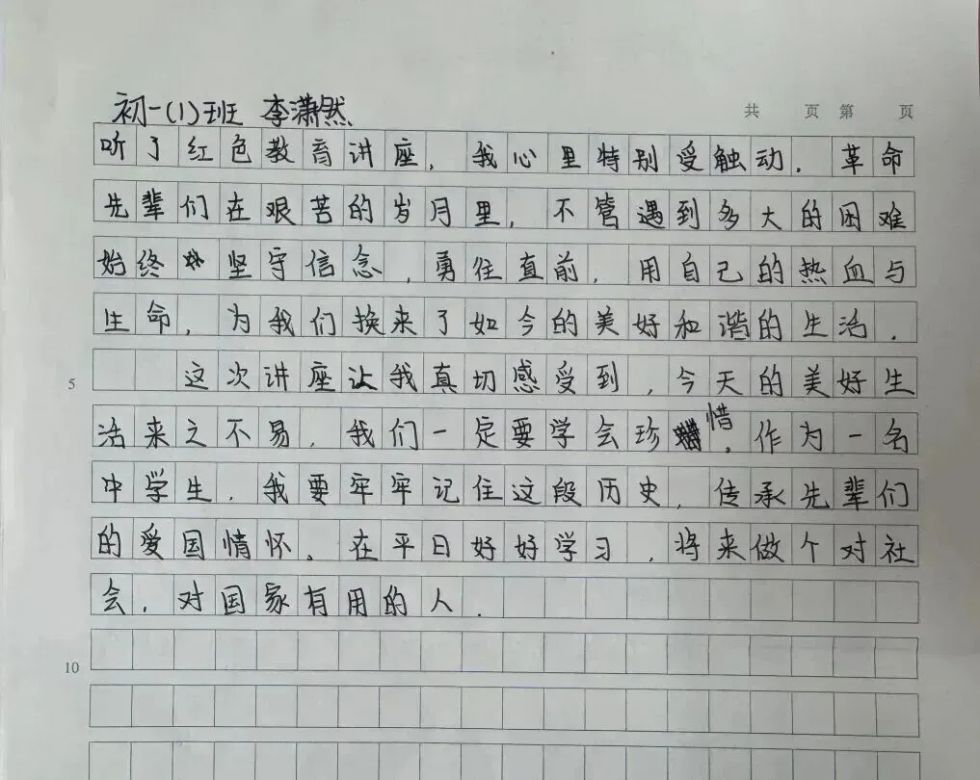 共 页 第 页
初一(1)班 李潇然
听了红色教育讲座，我心里特别受触动．革命
先辈们在艰苦的岁月里，不管遇到多大的困难
始终坚守信念，勇往直前，用自己的热血与
生命，为我们换来了如今的美好和谐的生活．
5 这次讲座让我真切感受到，今天的美好生
活来之不易，我们一定要学会珍惜，作为一名
中学生，我要牢牢记住这段历史，传承先辈们
的爱国情怀。在平日好好学习，将来做个对社
会，对国家有用的人．
10